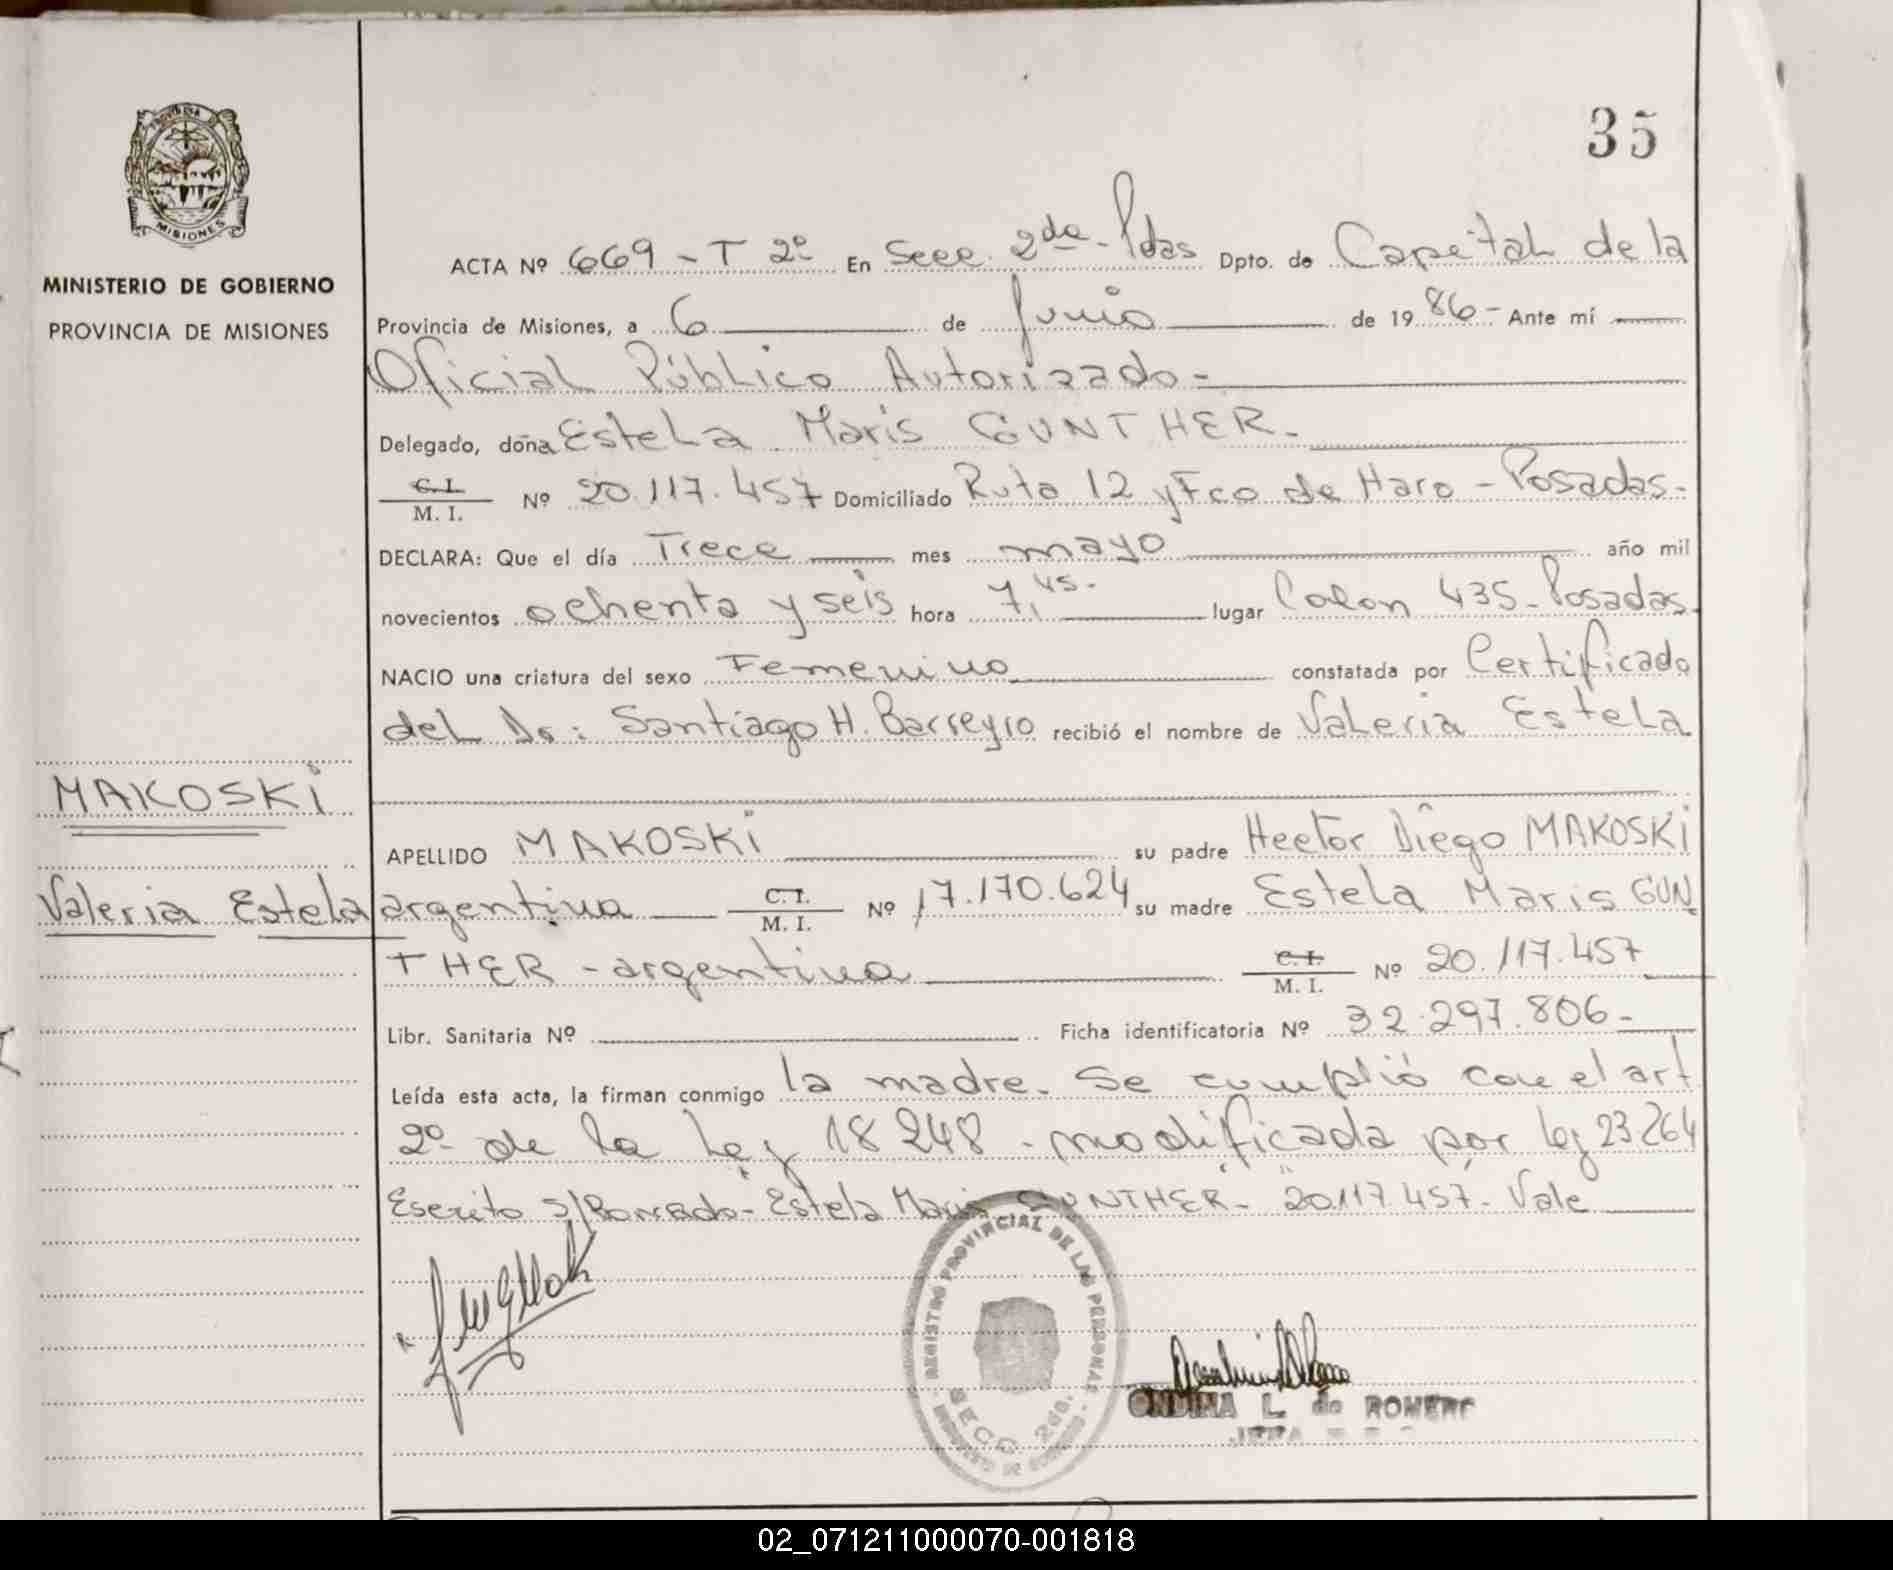 35
PROVINCIA DE
MISIONES
MINISTERIO DE GOBIERNO
PROVINCIA DE MISIONES
ACTA Nº 669 - T 2º En Secc 2da - Pdas Dpto. de Capital de la
Provincia de Misiones, a 6 de Junio de 1986 - Ante mí
Oficial Público Autorizado -
Delegado, doña Estela Maris GUNTHER -
C. I.
M. I. Nº 20.117.457 Domiciliado Ruta 12 y Fco de Haro - Posadas -
DECLARA: Que el día Trece mes mayo año mil
novecientos ochenta y seis hora 7,45 - lugar Colon 435 - Posadas -
NACIO una criatura del sexo Femenino constatada por Certificado
del Dr: Santiago H. Barreyro recibió el nombre de Valeria Estela
MAKOSKI
APELLIDO MAKOSKI su padre Hector Diego MAKOSKI
Valeria Estela
argentina C. I. M. I. Nº 17.170.624 su madre Estela Maris GUN
THER - argentina C. I. M. I. Nº 20.117.457
Libr. Sanitaria Nº Ficha identificatoria Nº 32.297.806 -
Leída esta acta, la firman conmigo la madre - Se cumplió con el art
2º de la Ley 18248 - modificada por ley 23264
Escrito s/Borrado - "Estela Maris GUNTHER - 20.117.457 - Vale
REGISTRO PROVINCIAL DE LAS PERSONAS
SECC. 2da.
ONDINA L. de ROMERO
JEFA
02_071211000070-001818